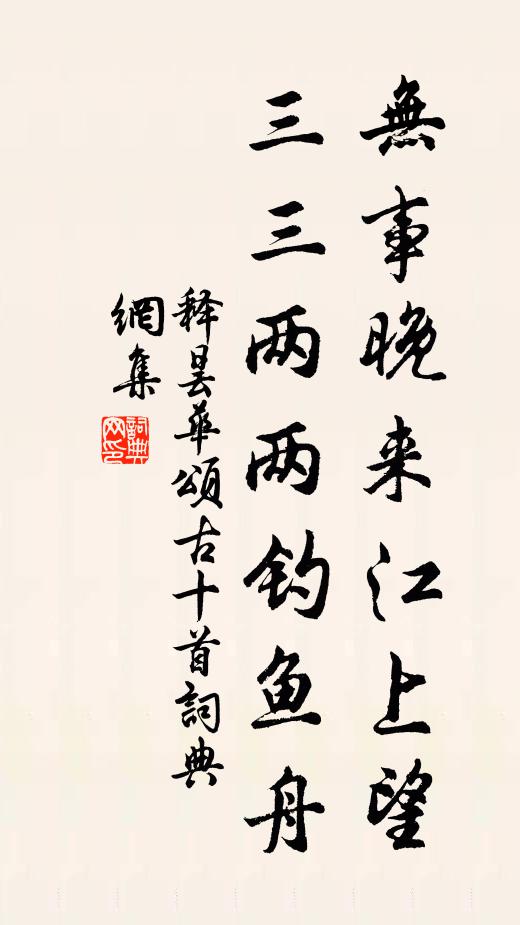 無事晚来江上望
三三两两钓鱼舟
释昙華頌古十首詞典
網集
詞典
网印